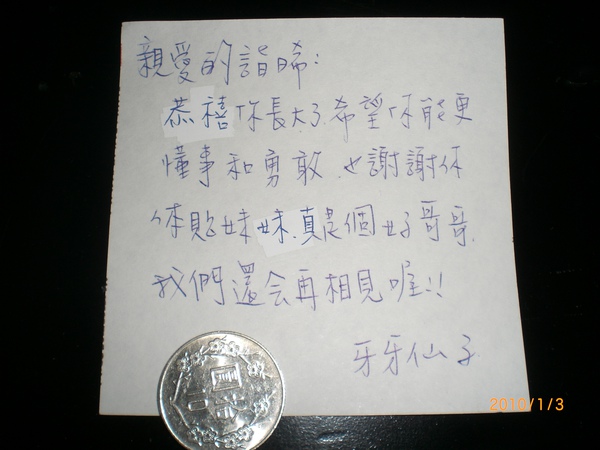 親愛的諧晞:
恭禧你長大了希望你能更
懂事和勇敢.也謝謝你
体貼妹妹.真是個好哥哥.
我們還会再相見喔!!
牙牙仙子
拾圓
2010/1/3